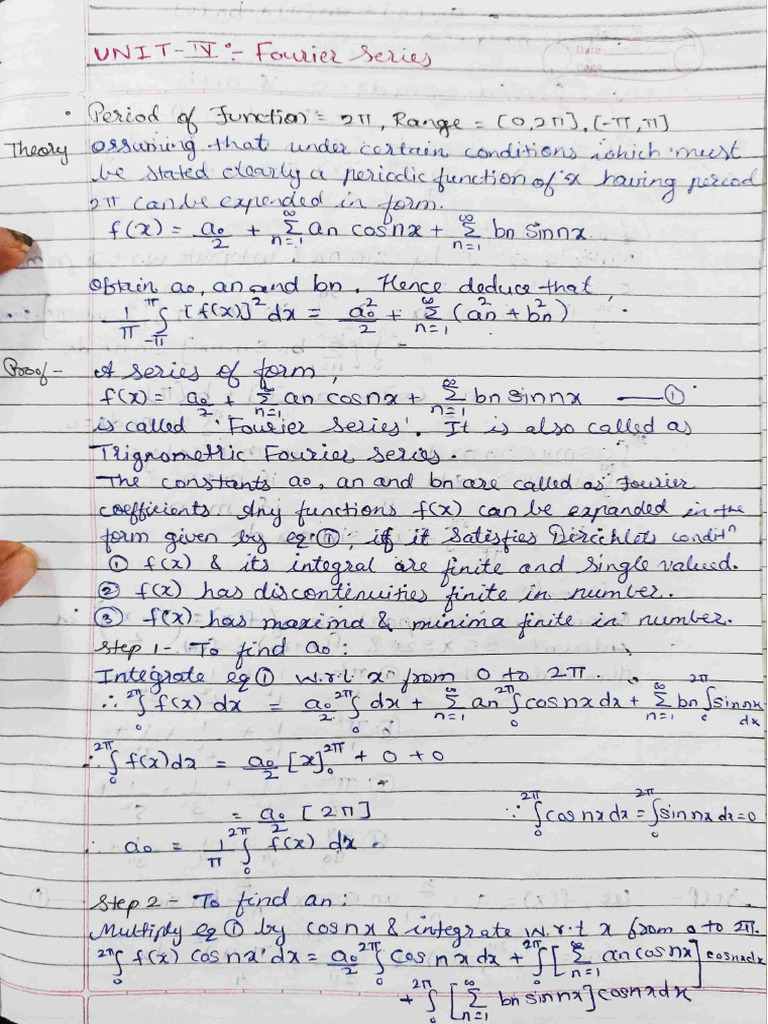 UNIT-IV :- Fourier Series
Date
Page
• Period of Function = 2π, Range = [0,2π], [-π,π]
Theory assuming that under certain conditions which must
be stated clearly a periodic function of x having period
2π can be expended in form.
f(x) = a0/2 + ∞Σn=1 an cosnx + ∞Σn=1 bn sinnx
Obtain a0, an and bn. Hence deduce that,
1/π π∫-π [f(x)]² dx = a0²/2 + ∞Σn=1 (an² + bn²)
Proof - A series of form,
f(x) = a0/2 + ∞Σn=1 an cosnx + ∞Σn=1 bn sinnx —— ①
is called 'Fourier Series'. It is also called as
Trignometric Fourier series.
The constants a0, an and bn are called as Fourier
coefficients. Any functions f(x) can be expanded in the
form given by eq ①, if it satisfies Dirichlets conditⁿ
① f(x) & its integral are finite and single valued.
② f(x) has discontinuities finite in number.
③ f(x) has maxima & minima finite in number.
Step 1 - To find a0 :
Integrate eq ① w.r.t x from 0 to 2π.
∴ 2π∫0 f(x) dx = a0/2 2π∫0 dx + ∞Σn=1 an 2π∫0 cosnx dx + ∞Σn=1 bn 2π∫0 sinnx dx
∴ 2π∫0 f(x) dx = a0/2 [x]2π0 + 0 + 0
= a0/2 [2π] ∵ 2π∫0 cosnx dx = 2π∫0 sinnx dx = 0
∴ a0 = 1/π 2π∫0 f(x) dx.
Step 2 - To find an :
Multiply eq ① by cosnx & integrate w.r.t x from 0 to 2π.
2π∫0 f(x) cosnx dx = a0/2 2π∫0 cosnx dx + 2π∫0 [∞Σn=1 an cosnx] cosnx dx
+ 2π∫0 [∞Σn=1 bn sinnx] cosnx dx